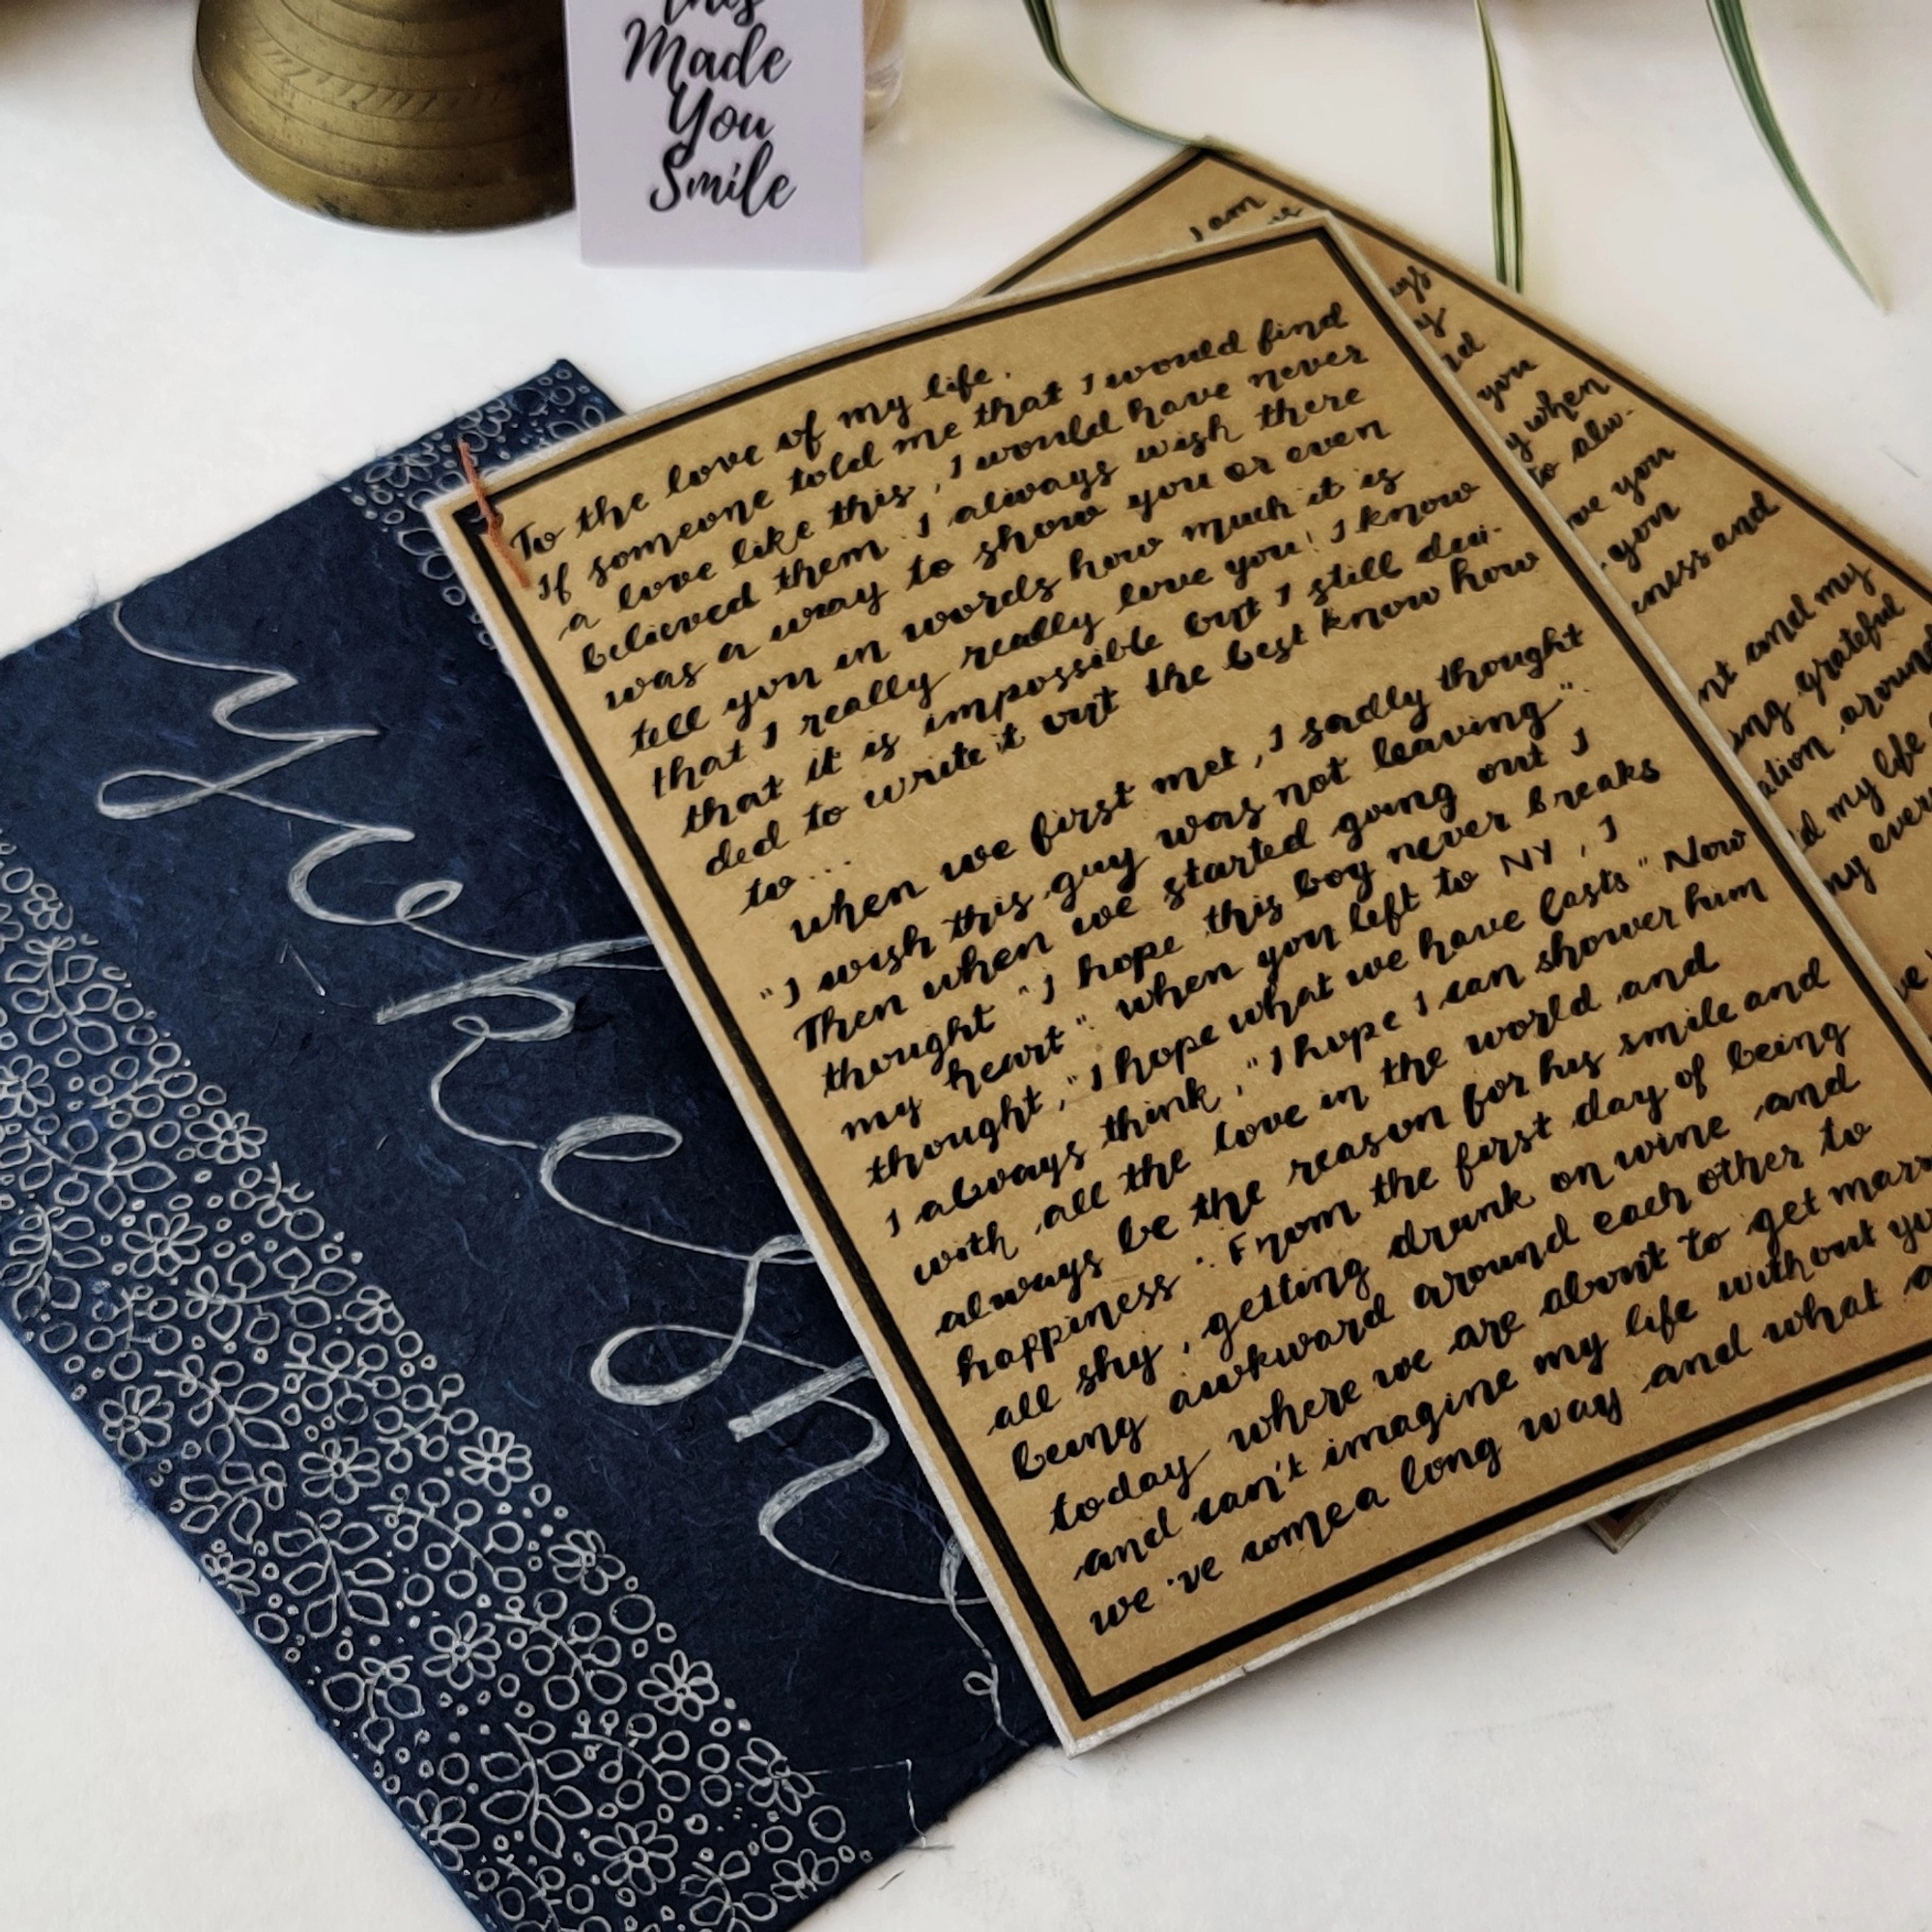 this
Made
You
Smile
To the love of my life.
If someone told me that I would find
a love like this, I would have never
believed them. I always wish there
was a way to show you or even
tell you in words how much it is
that I really really love you! I know
that it is impossible but I still deci-
ded to write it out the best know how
to...
when we first met, I sadly thought
"I wish this guy was not leaving".
Then when we started going out I
thought "I hope this boy never breaks
my heart". when you left to NY, I
thought, "I hope what we have lasts" Now
I always think, "I hope I can shower him
with all the love in the world and
always be the reason for his smile and
happiness". From the first day of being
all shy, getting drunk on wine and
being awkward around each other to
today where we are about to get marr
and can't imagine my life without yo
we've come a long way and what a
I am
you
when
to alw-
you
you
and
and my
grateful
around
my life
my ever